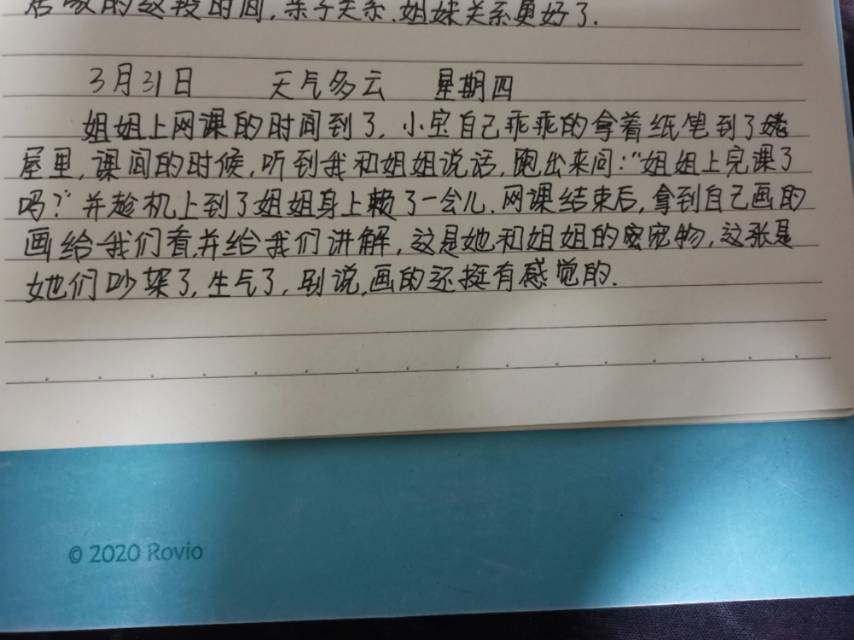 居家的这段时间,亲子关系.姐妹关系更好了.
3月31日 天气多云 星期四
姐姐上网课的时间到了,小宝自己乖乖的拿着纸笔到了姥
屋里,课间的时候,听到我和姐姐说话,跑出来问:"姐姐上完课了
吗?"并趁机上到了姐姐身上赖了一会儿.网课结束后,拿到自己画的
画给我们看,并给我们讲解,这是她和姐姐的宠物,这张是
她们吵架了,生气了,别说,画的还挺有感觉的.
© 2020 Rovio